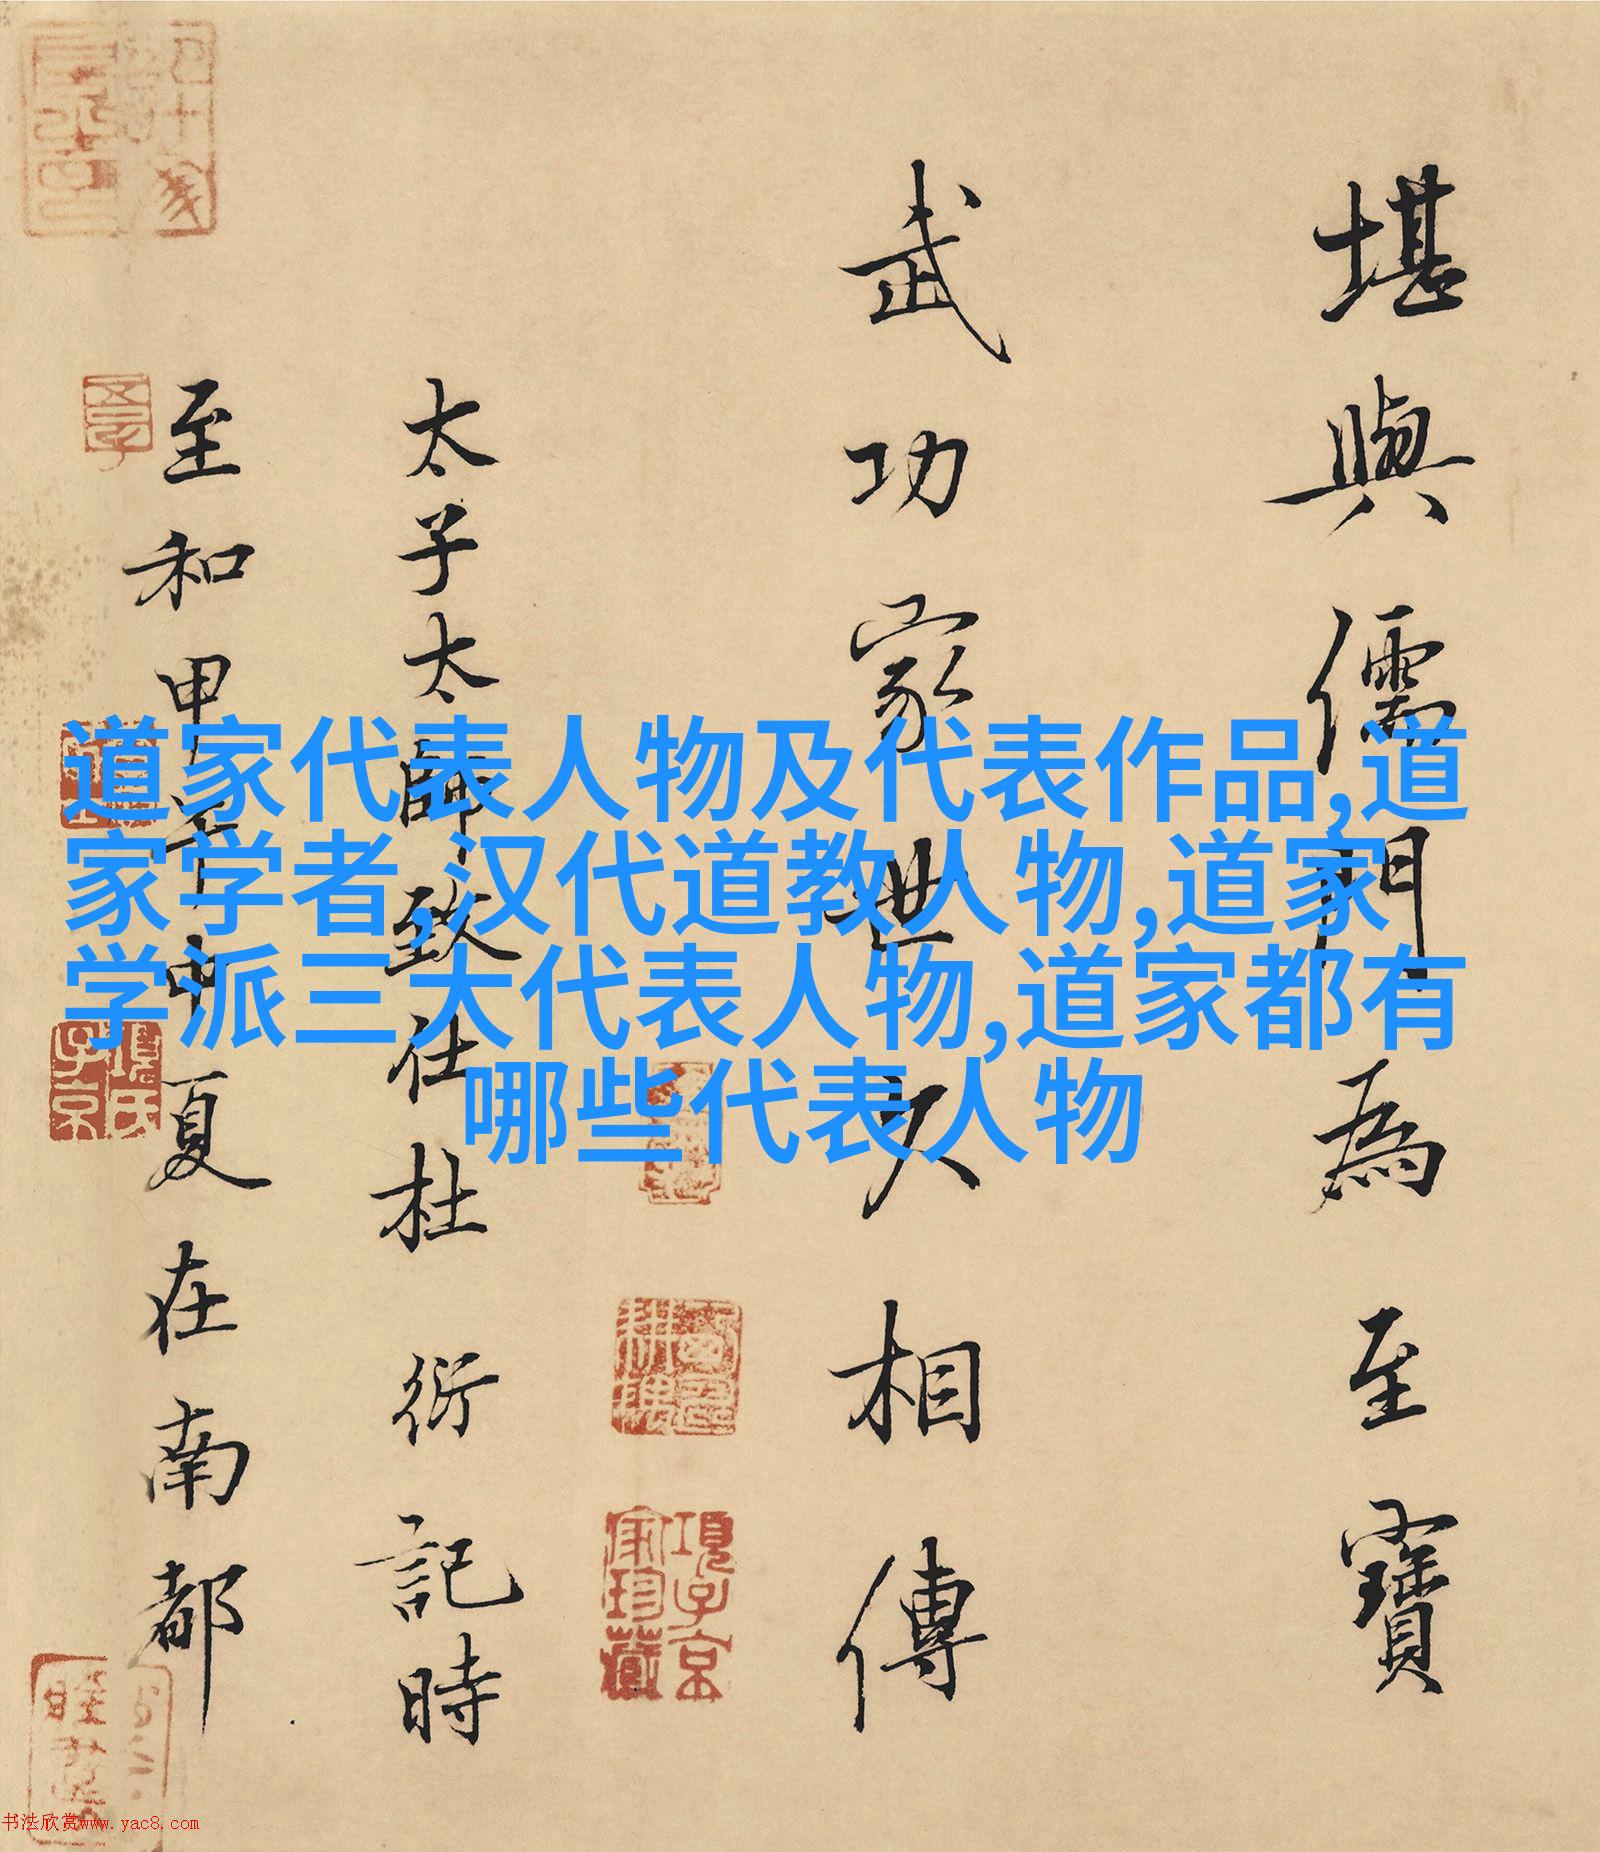 堪與儒門為至寶
武功家世久相傳
太子太師致仕杜衍記時
至和甲午中夏在南都
道家代表人物及代表作品,道
家学者,汉代道教人物,道家
学派三大代表人物,道家都有
哪些代表人物
項子京家珍藏
項氏子京
书法欣赏www.yac8.com